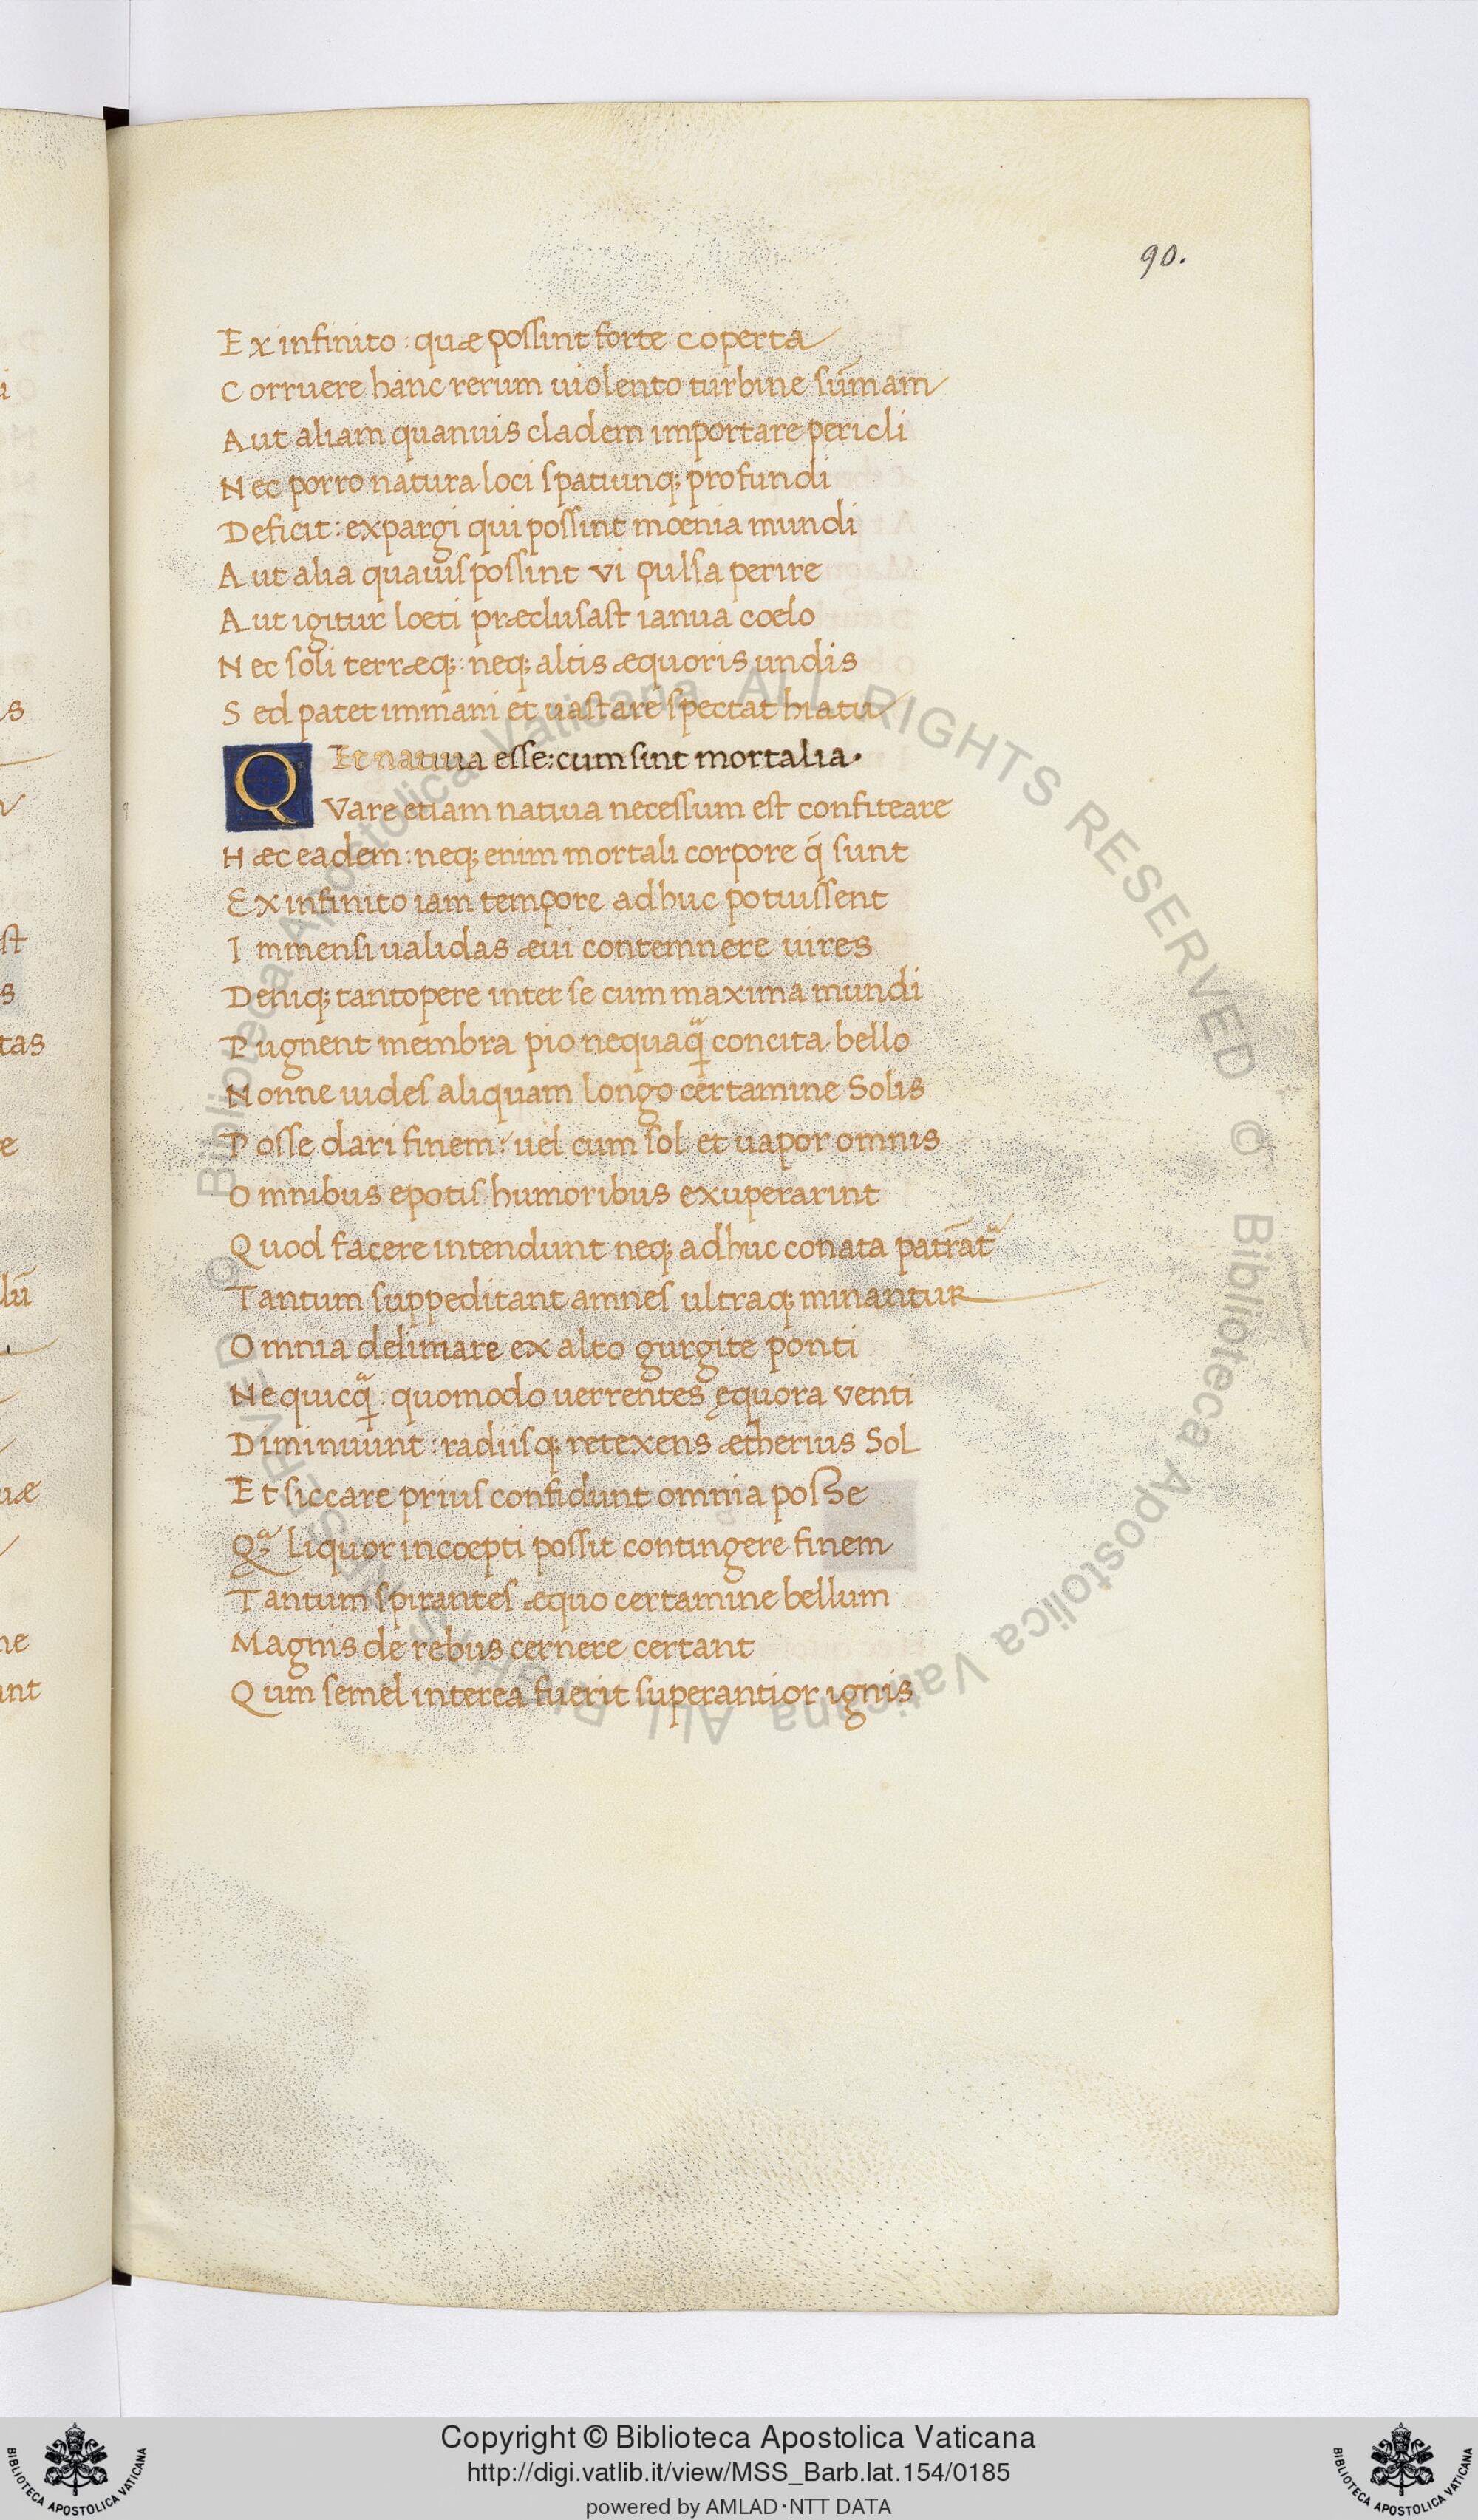 90.
Ex infinito : quæ possint forte coperta
Corruere hanc rerum uiolento turbine sūmam
Aut aliam quanuis cladem importare pericli
Nec porro natura loci spatiunq; profundi
Deficit : expargi qui possint mœnia mundi
Aut alia quauis possint vi pulsa perire
Aut igitur loeti præclusast ianua coelo
Nec soli terræq; : neq; altis æquoris undis
Sed patet immani et uastare spectat hiatu
Et natiua esse : cum sint mortalia.
QVare etiam natiua necessum est confiteare
Hæc eadem : neq; enim mortali corpore q̄ sunt
Ex infinito iam tempore adhuc potuissent
Immensi ualidas æui contemnere uires
Deniq; tantopere inter se cum maxima mundi
Pugnent membra pio nequaq̈ concita bello
Nonne uides aliquam longo certamine Solis
Posse dari finem : uel cum sol et uapor omnis
Omnibus epotis humoribus exuperarint
Quod facere intendunt neq; adhuc conata patrāt
Tantum suppeditant amnes ultraq; minantur
Omnia delimare ex alto gurgite ponti
Nequicq̈ : quomodo uerrentes ęquora venti
Diminuunt : radiisq; retexens ætherius Sol
Et siccare prius confidunt omnia posse
Qª liquor incoepti possit contingere finem
Tantum spirantes æquo certamine bellum
Magnis de rebus cernere certant
Qum semel interea fuerit superantior ignis
Copyright © Biblioteca Apostolica Vaticana
http://digi.vatlib.it/view/MSS_Barb.lat.154/0185
powered by AMLAD·NTT DATA
BIBLIOTECA APOSTOLICA VATICANA
BIBLIOTECA APOSTOLICA VATICANA
© Biblioteca Apostolica Vaticana ALL RIGHTS RESERVED © Biblioteca Apostolica Vaticana ALL RIGHTS RESERVED